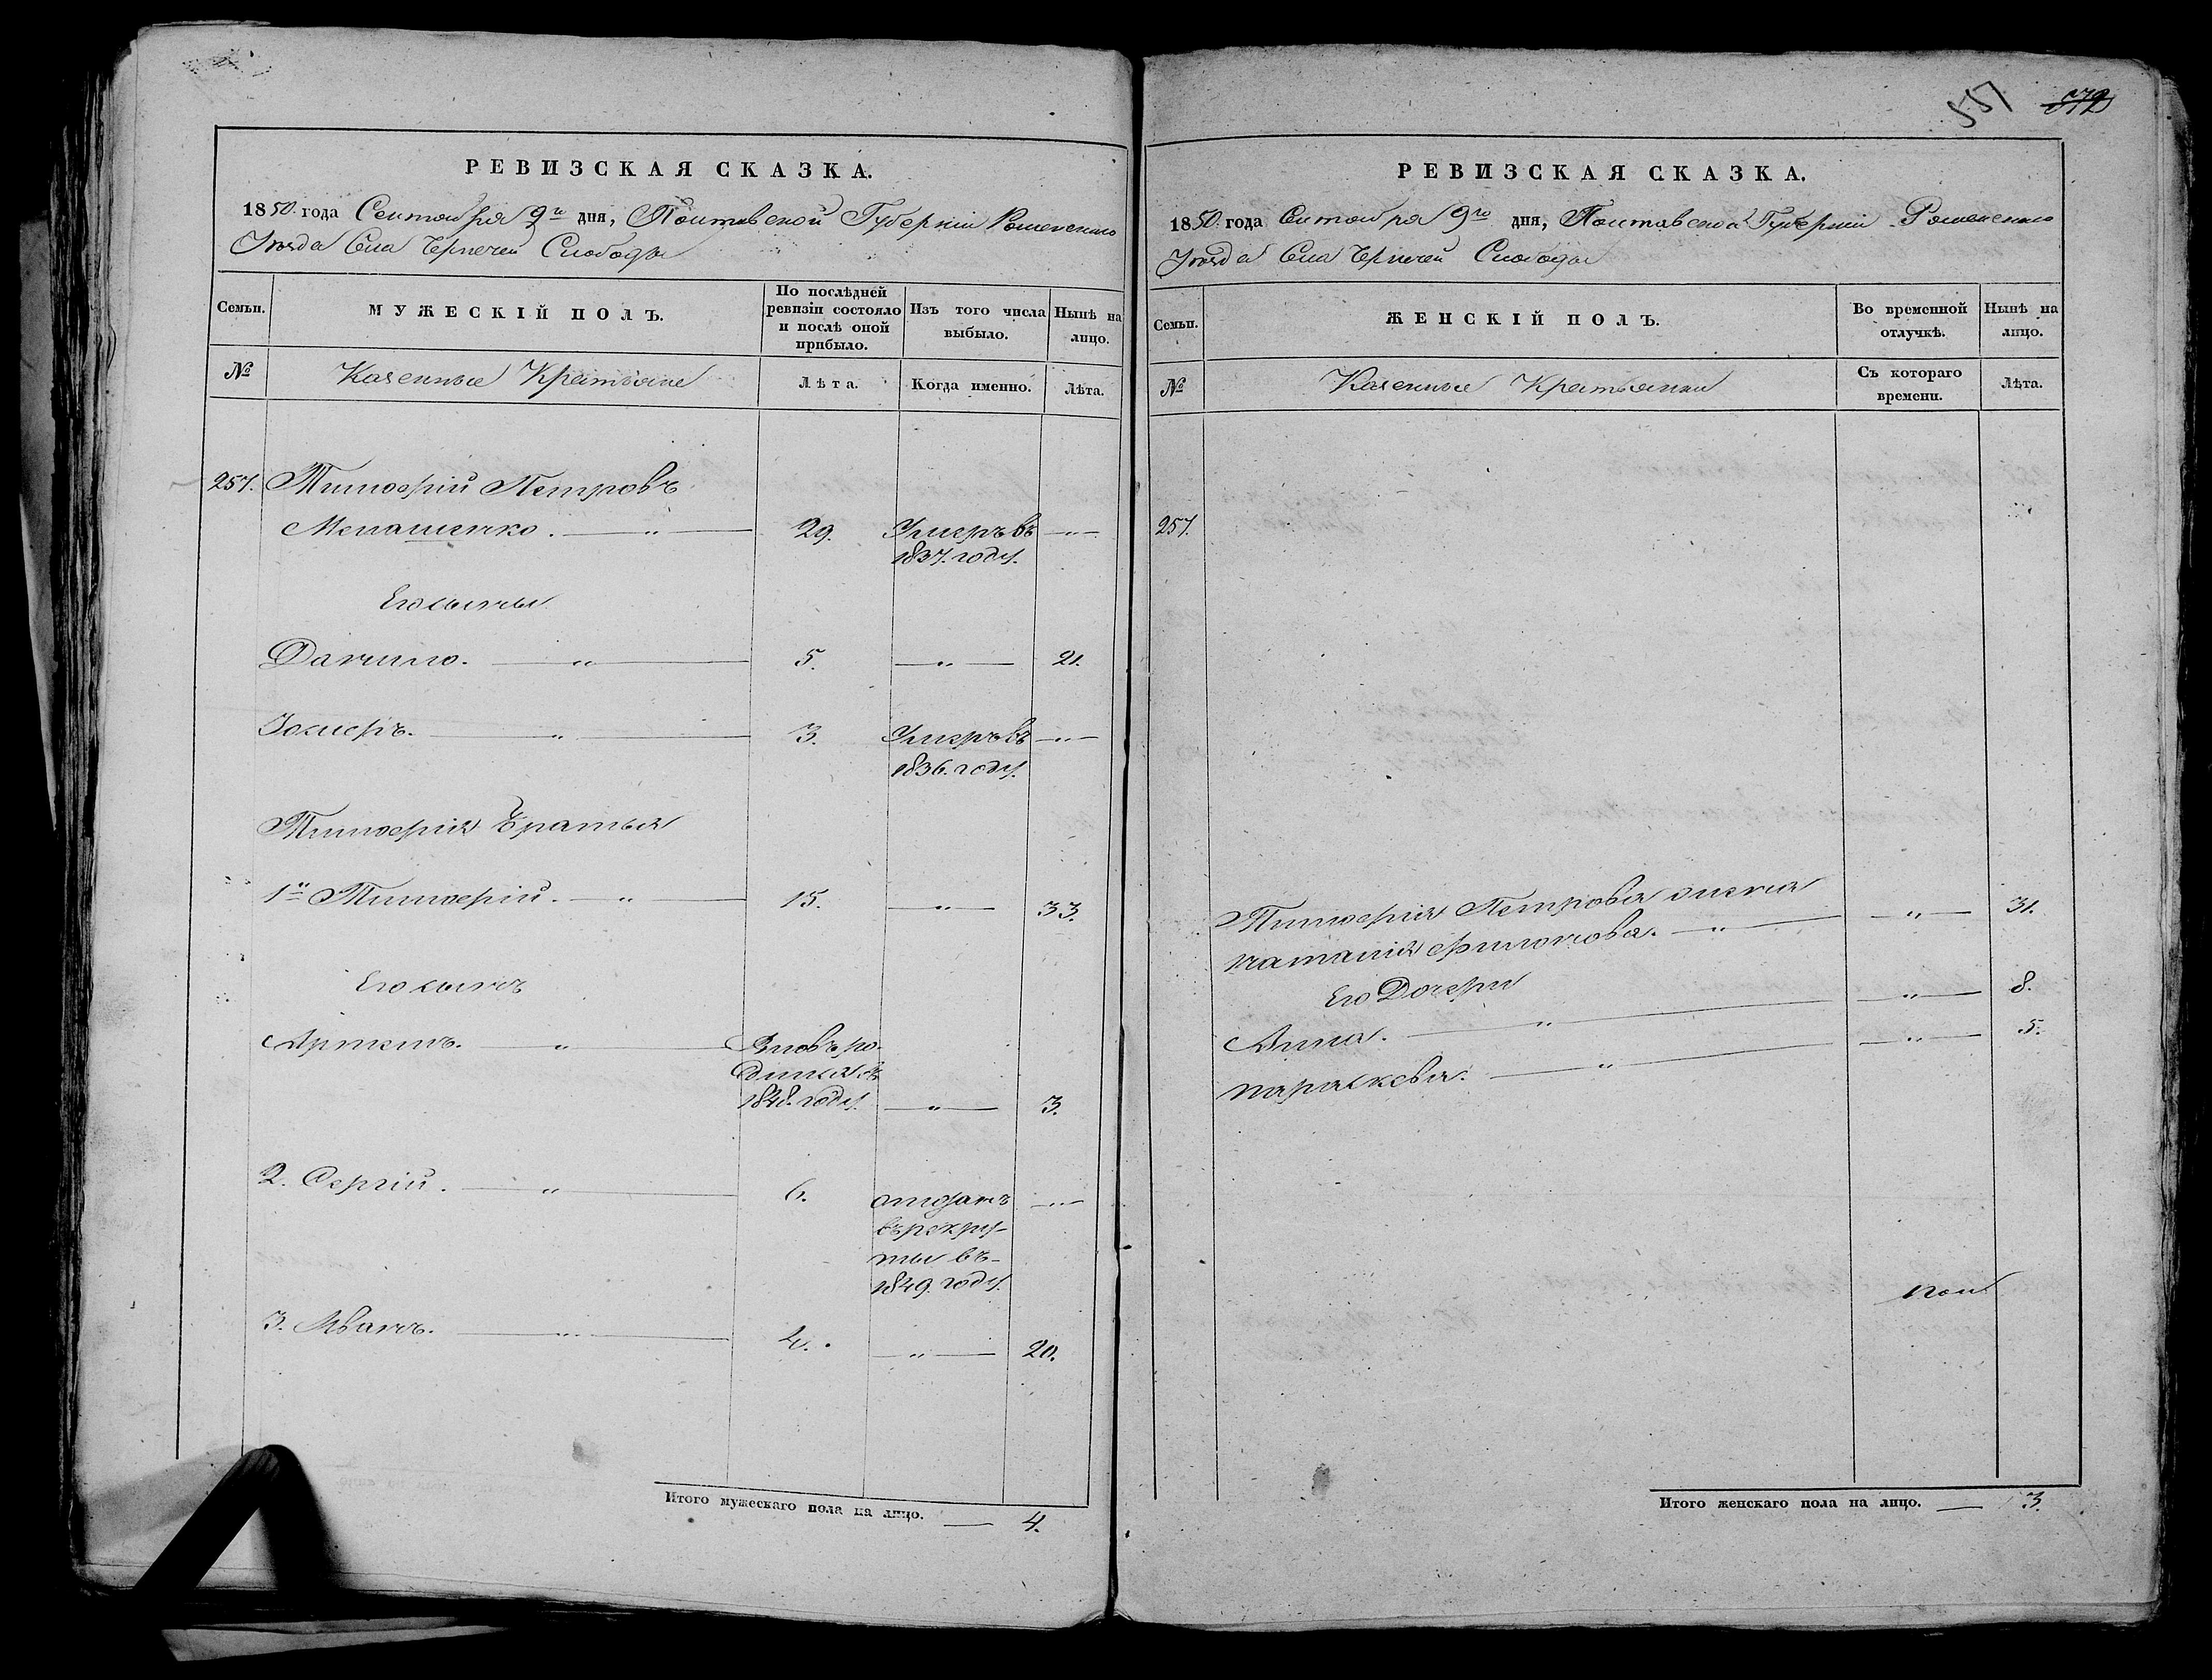 РЕВИЗСКАЯ СКАЗКА.
1850 года Сентября 9го дня, Полтавской Губерніи Роменскаго
Уезда Села Черпечей Слободы
Семьи.
МУЖЕСКІЙ ПОЛЪ.
По послѣдней ревизіи состояло и послѣ оной прибыло.
Изъ того числа выбыло.
Нынѣ на лицо.
№
Казенные Крестьяне
Лѣта.
Когда именно.
Лѣта.
257. Тимофрій Петровъ
Менашенко. — " — 29. Умеръ въ — " —
1837. году.
Его сыны
Данило. — " — 5. — " — 21.
Зосмеръ. — " — 3. Умеръ въ — " —
1836. году.
Тимофрія братья
1й Тимофрій. — " — 15. — " — 33.
Его сынъ
Артемъ. — " — Вновь ро-
дился въ
1848. году. — " — 3.
2. Сергій. — " — 6. отданъ — " —
въ рекру-
ты въ-
1849. году.
3. Иванъ. — " — 4. — " — 20.
Итого мужескаго пола на лицо. — 4.
551 572
РЕВИЗСКАЯ СКАЗКА.
1850 года Сентября 9го дня, Полтавской Губерніи Роменскаго
Уезда Села Черпечей Слободы
Семьи.
ЖЕНСКІЙ ПОЛЪ.
Во временной отлучкѣ.
Нынѣ на лицо.
№
Казенные Крестьянки
Съ котораго времени.
Лѣта.
257.
Тимофрія Петрова жена
Наталія Филонова. — " — " — 31.
Его Дочери
Анна. — " — " — 8.
Параскева. — " — " — 5.
Итого женскаго пола на лицо. — 3.